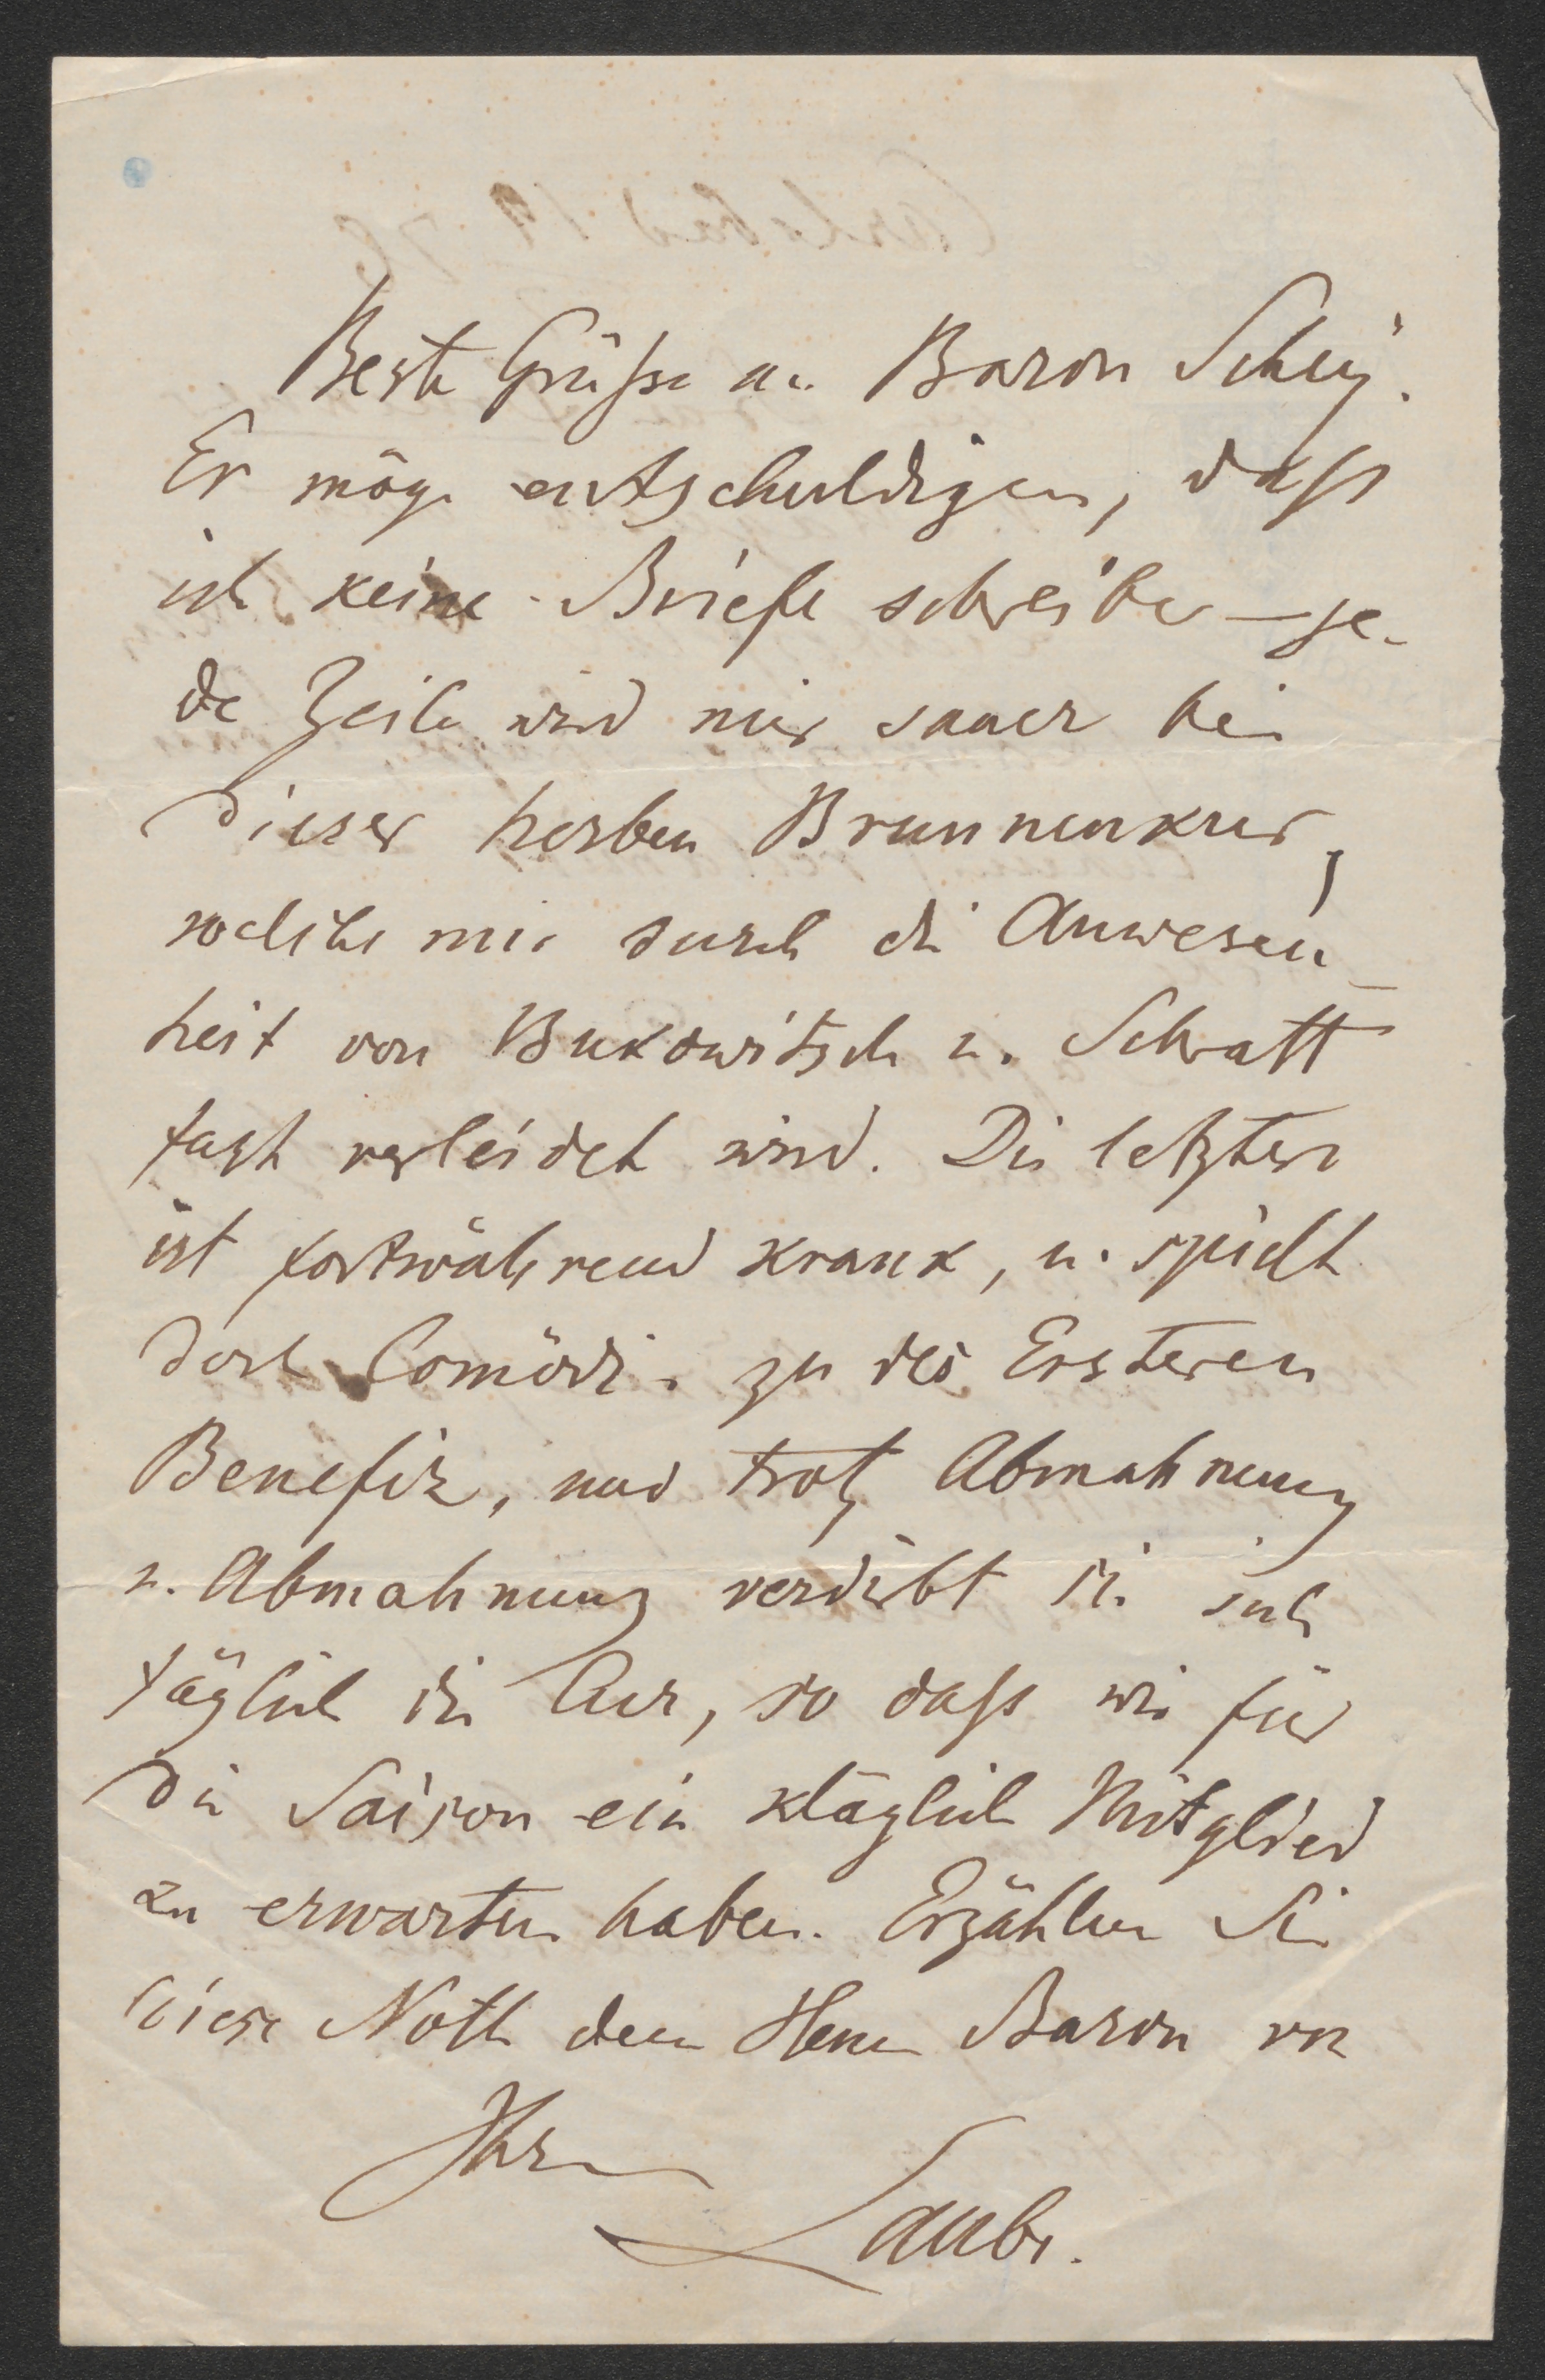 Beste Grüße an Baron Schey.
Er möge entschuldigen, daß
ich keine Briefe schreibe – je-
de Zeile wird mir sauer bei
dieser herben Brunnenkur,
welche mir durch die Anwesen-
heit von Bukowitsch u. Schratt
fast verleidet wird. Die letztere
ist fortwährend krank, u. spielt
doch Comödie zu des Ersteren
Benefiz, und trotz Abmahnung
u. Abmahnung verdirbt sie sich
täglich die Cur, so daß wir für
die Saison ein kläglich Mitglied
zu erwarten haben. Erzählen Sie
diese Noth dem Herrn Baron von
Ihrem
Laube.